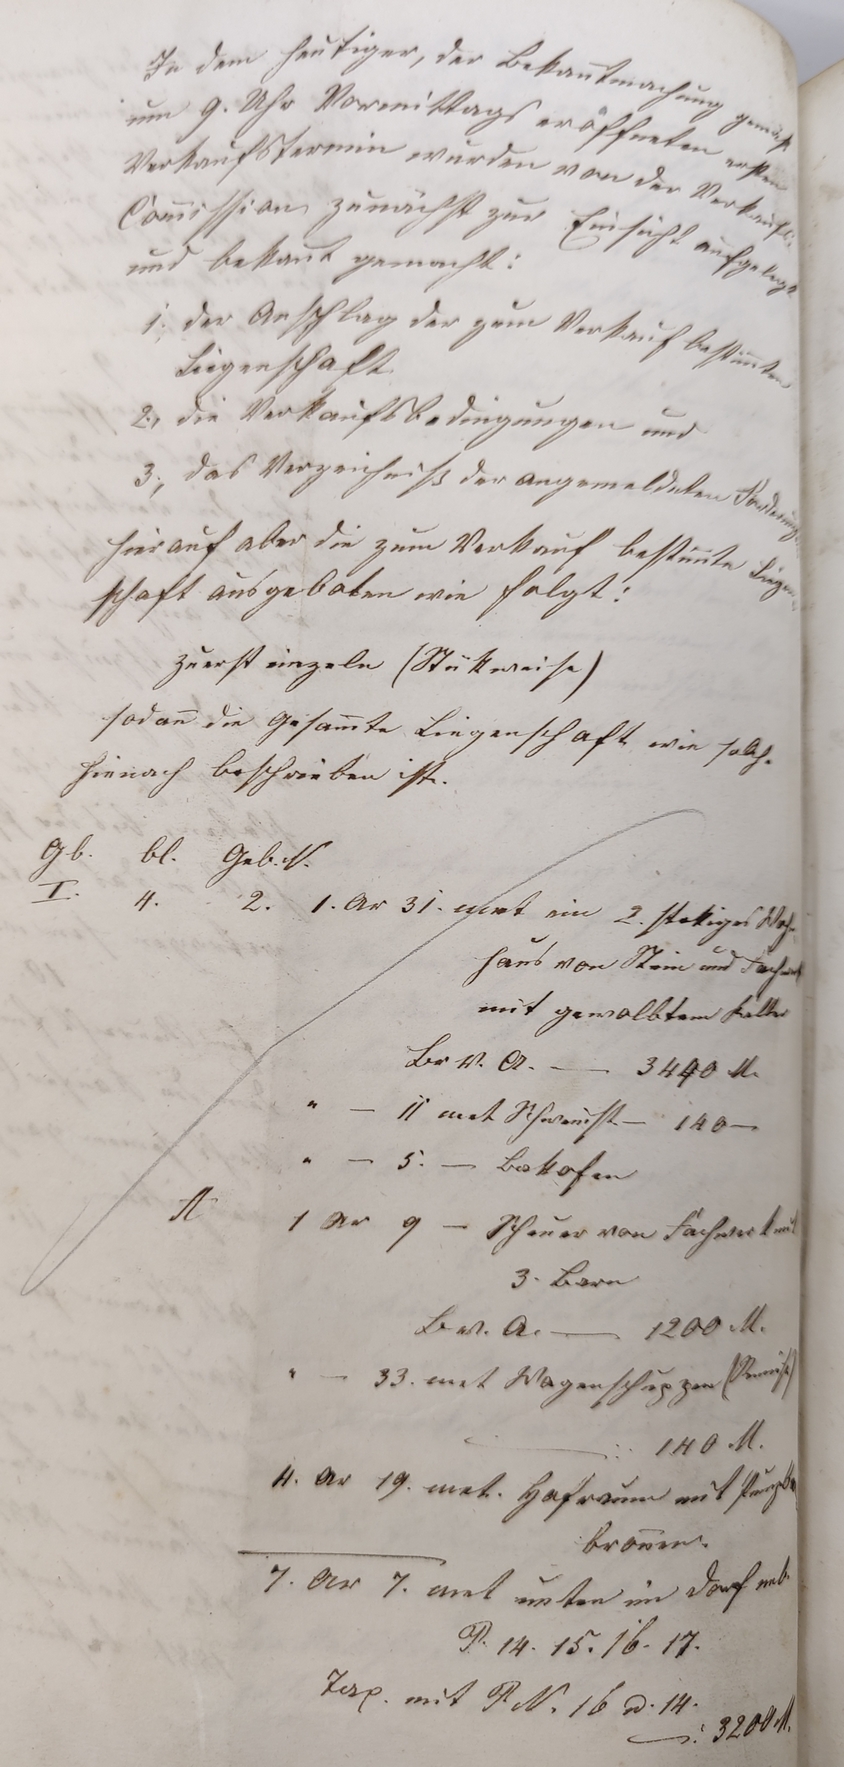 In dem heutiger, der Bekantmachung gemäß
um 9. Uhr Vormittags eröffneten ersten
Verkaufstermin wurden von der Verkaufs-
Comission zunächst zur Einsicht aufgelegt
und bekant gemacht:
1., der Anschlag der zum Verkauf bestimten
Liegenschaft
2., die Verkaufsbedingungen und
3., das Verzeichniß der angemeldeten Forderung
hierauf aber die zum Verkauf bestimte Liegen
schaft ausgeboten wie folgt:
zuerst einzeln (Stükweise)
sodan die Gesamte Liegenschaft wie solch.
hienach beschrieben ist.
Gb. bl. Geb. N.
I. 4. 2. 1. Ar 31. met ein 2. stokiges Woh-
haus von Stein und Fachwerk
mit gewolbtem Keller
Br. V. A. — 3440 M.
" — 11 met Schweinst — 140 —
" — 5. — Bakofen
A 1 Ar 9 — Scheuer von Fachwerk mit
3. Barn
B. V. A. — 1200 M.
" — 33. met Wagenschuppen (Remise)
140 M.
4. Ar 19. met. Hofraum mit
bronnen.
7. Ar 7. met unten im Dorf neb.
P. 14. 15. 16. 17.
Tax. mit P. N. 16 u. 14.
: 3200 M.